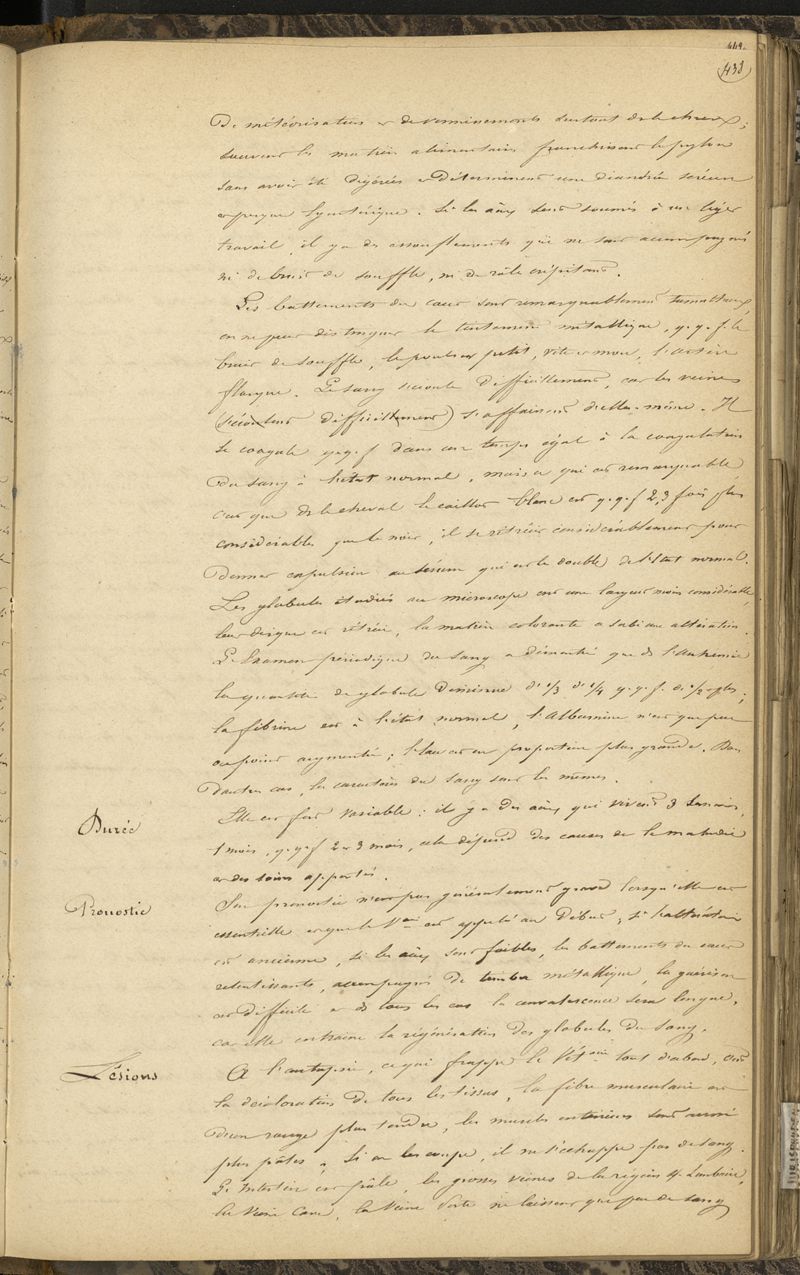 449.
438
De météorisation et de vomissements surtout ds le cheval;
souvent les matières alimentaires franchissent le pylore
sans avoir été digérées et Déterminent une diarrhée séreuse
et presque lyentérique. Si les aux sont soumis à un léger
travail, il y a des essoufflements qui ne sont accompagnés
ni de bruit de souffle, ni de râle crépitant.
Les battements du cœur sont remarquablement tumultueux,
on ne peut distinguer le tintement métallique, q.q.f. le
bruit de souffle, le pouls est petit, vite et mou, l'artère
flasque. Le sang s'écoule Difficilement, car les veines
(s'écoulent difficilement) s'affaissent d'elles-même. Il
se coagule q.q.f dans un temps égal à la coagulation
Du sang à l'état normal, mais ce qui est remarquable
c'est que ds le cheval le caillot blanc est q.q.f 2,3 fois plus
considérable que le noir, il se rétrécit considérablement pour
donner expulsion au sérum qui est le double de l'état normal.
Les globules étudiés au microscope ont une largeur moins considérable,
leur disque est rétréci, la matière colorante a subi une altération.
L'Examen périodique du sang a démontré que ds l'anhémie
la quantité de globule Diminue d'1/3 d'1/4 q.q.f. d'1/2 et plus;
la fibrine est à l'état normal, l'Albumine n'est que peu
ou point augmentée; l'eau est en proportion plus grande. Dans
d'autres cas, les caractères du sang sont les mêmes.
Durée
Elle est fort variable: il y a des aux qui vivent 3 semaines,
1 mois, q.q.f 2 et 3 mois, cela dépend des causes de la maladie
et des soins apportés.
Pronostic
Son pronostic n'est pas généralement grave lorsqu'elle est
essentielle et que le Vre est appelé au Début; si l'altération
est ancienne, si les aux sont faibles, les battements du cœur
retentissants, accompagnés De timbre métallique, la guérison
est difficile et ds tous les cas la convalescence sera longue,
car elle entraine la régénération des globules Du Sang.
Lésions
A l'autopsie, ce qui frappe le Vétre tout d'abord, c'est
la décoloration De tous les tissus, la fibre musculaire est
d'un rouge plus tendre, les muscles intérieurs sont aussi
plus pâles, si on les coupe, il ne s'échappe pas de sang.
L'Intestin est pâle, les grosses veines de la région s/ Lombaire,
la Veine Cave, la Veine Porte ne laissent que peu de sang